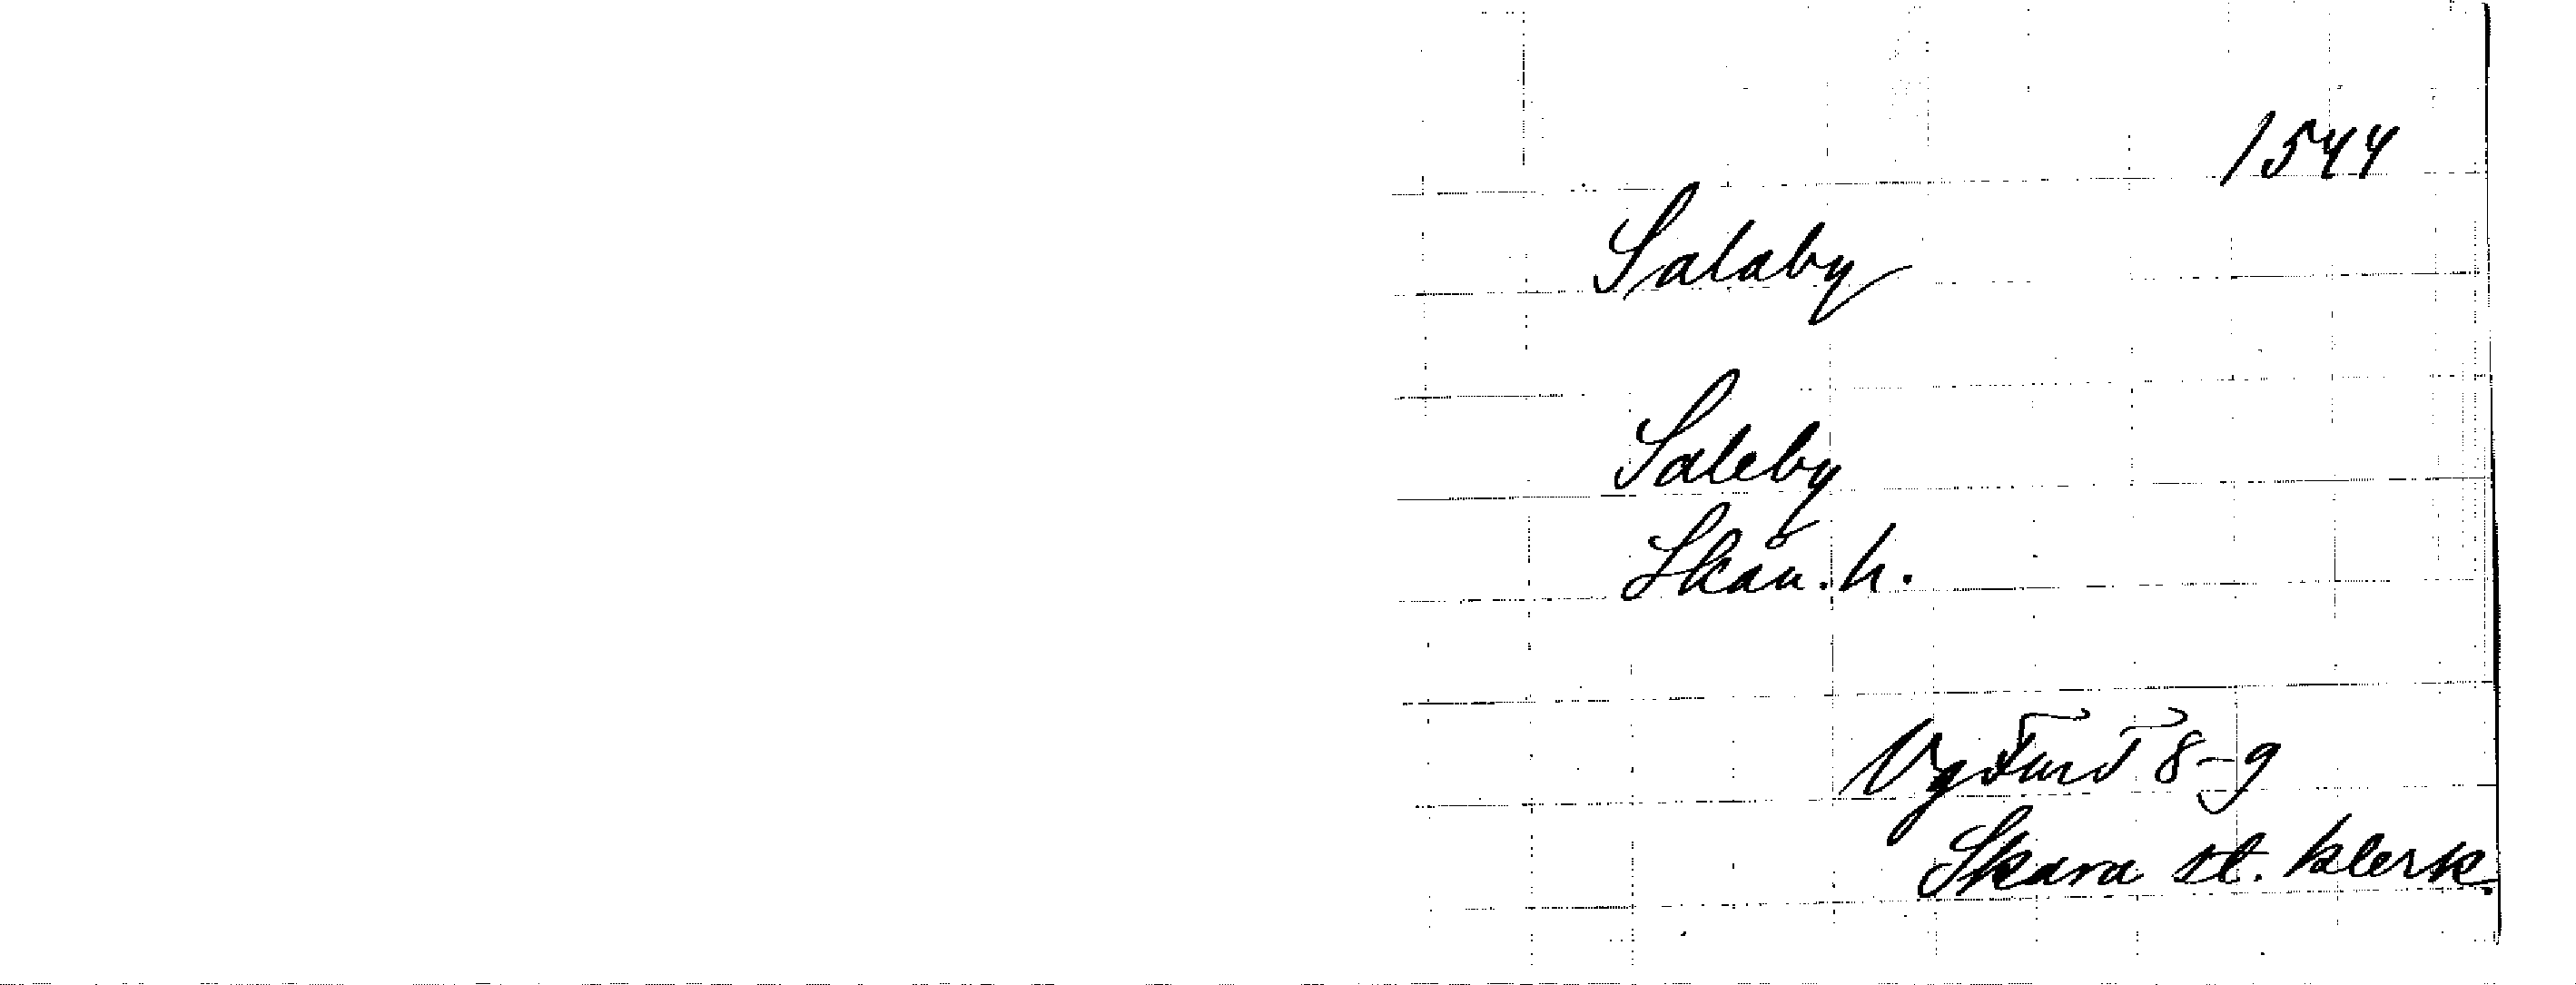 1544
Salaby
Saleby
Skån. h.
Vg 8-9
Skara st. klerk.